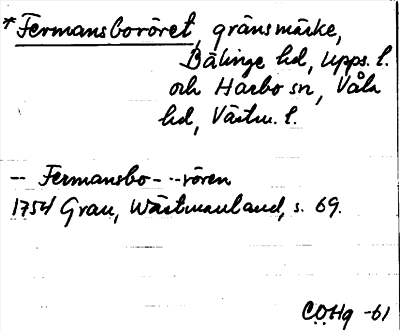 *Fermansboröret, gränsmärke,
Bälinge hd, Upps. l.
och Harbo sn, Våla
hd, Västm. l.
-- Fermansbo---rören
1754 Grau, Wästmanland, s. 69.
CÖHg -61